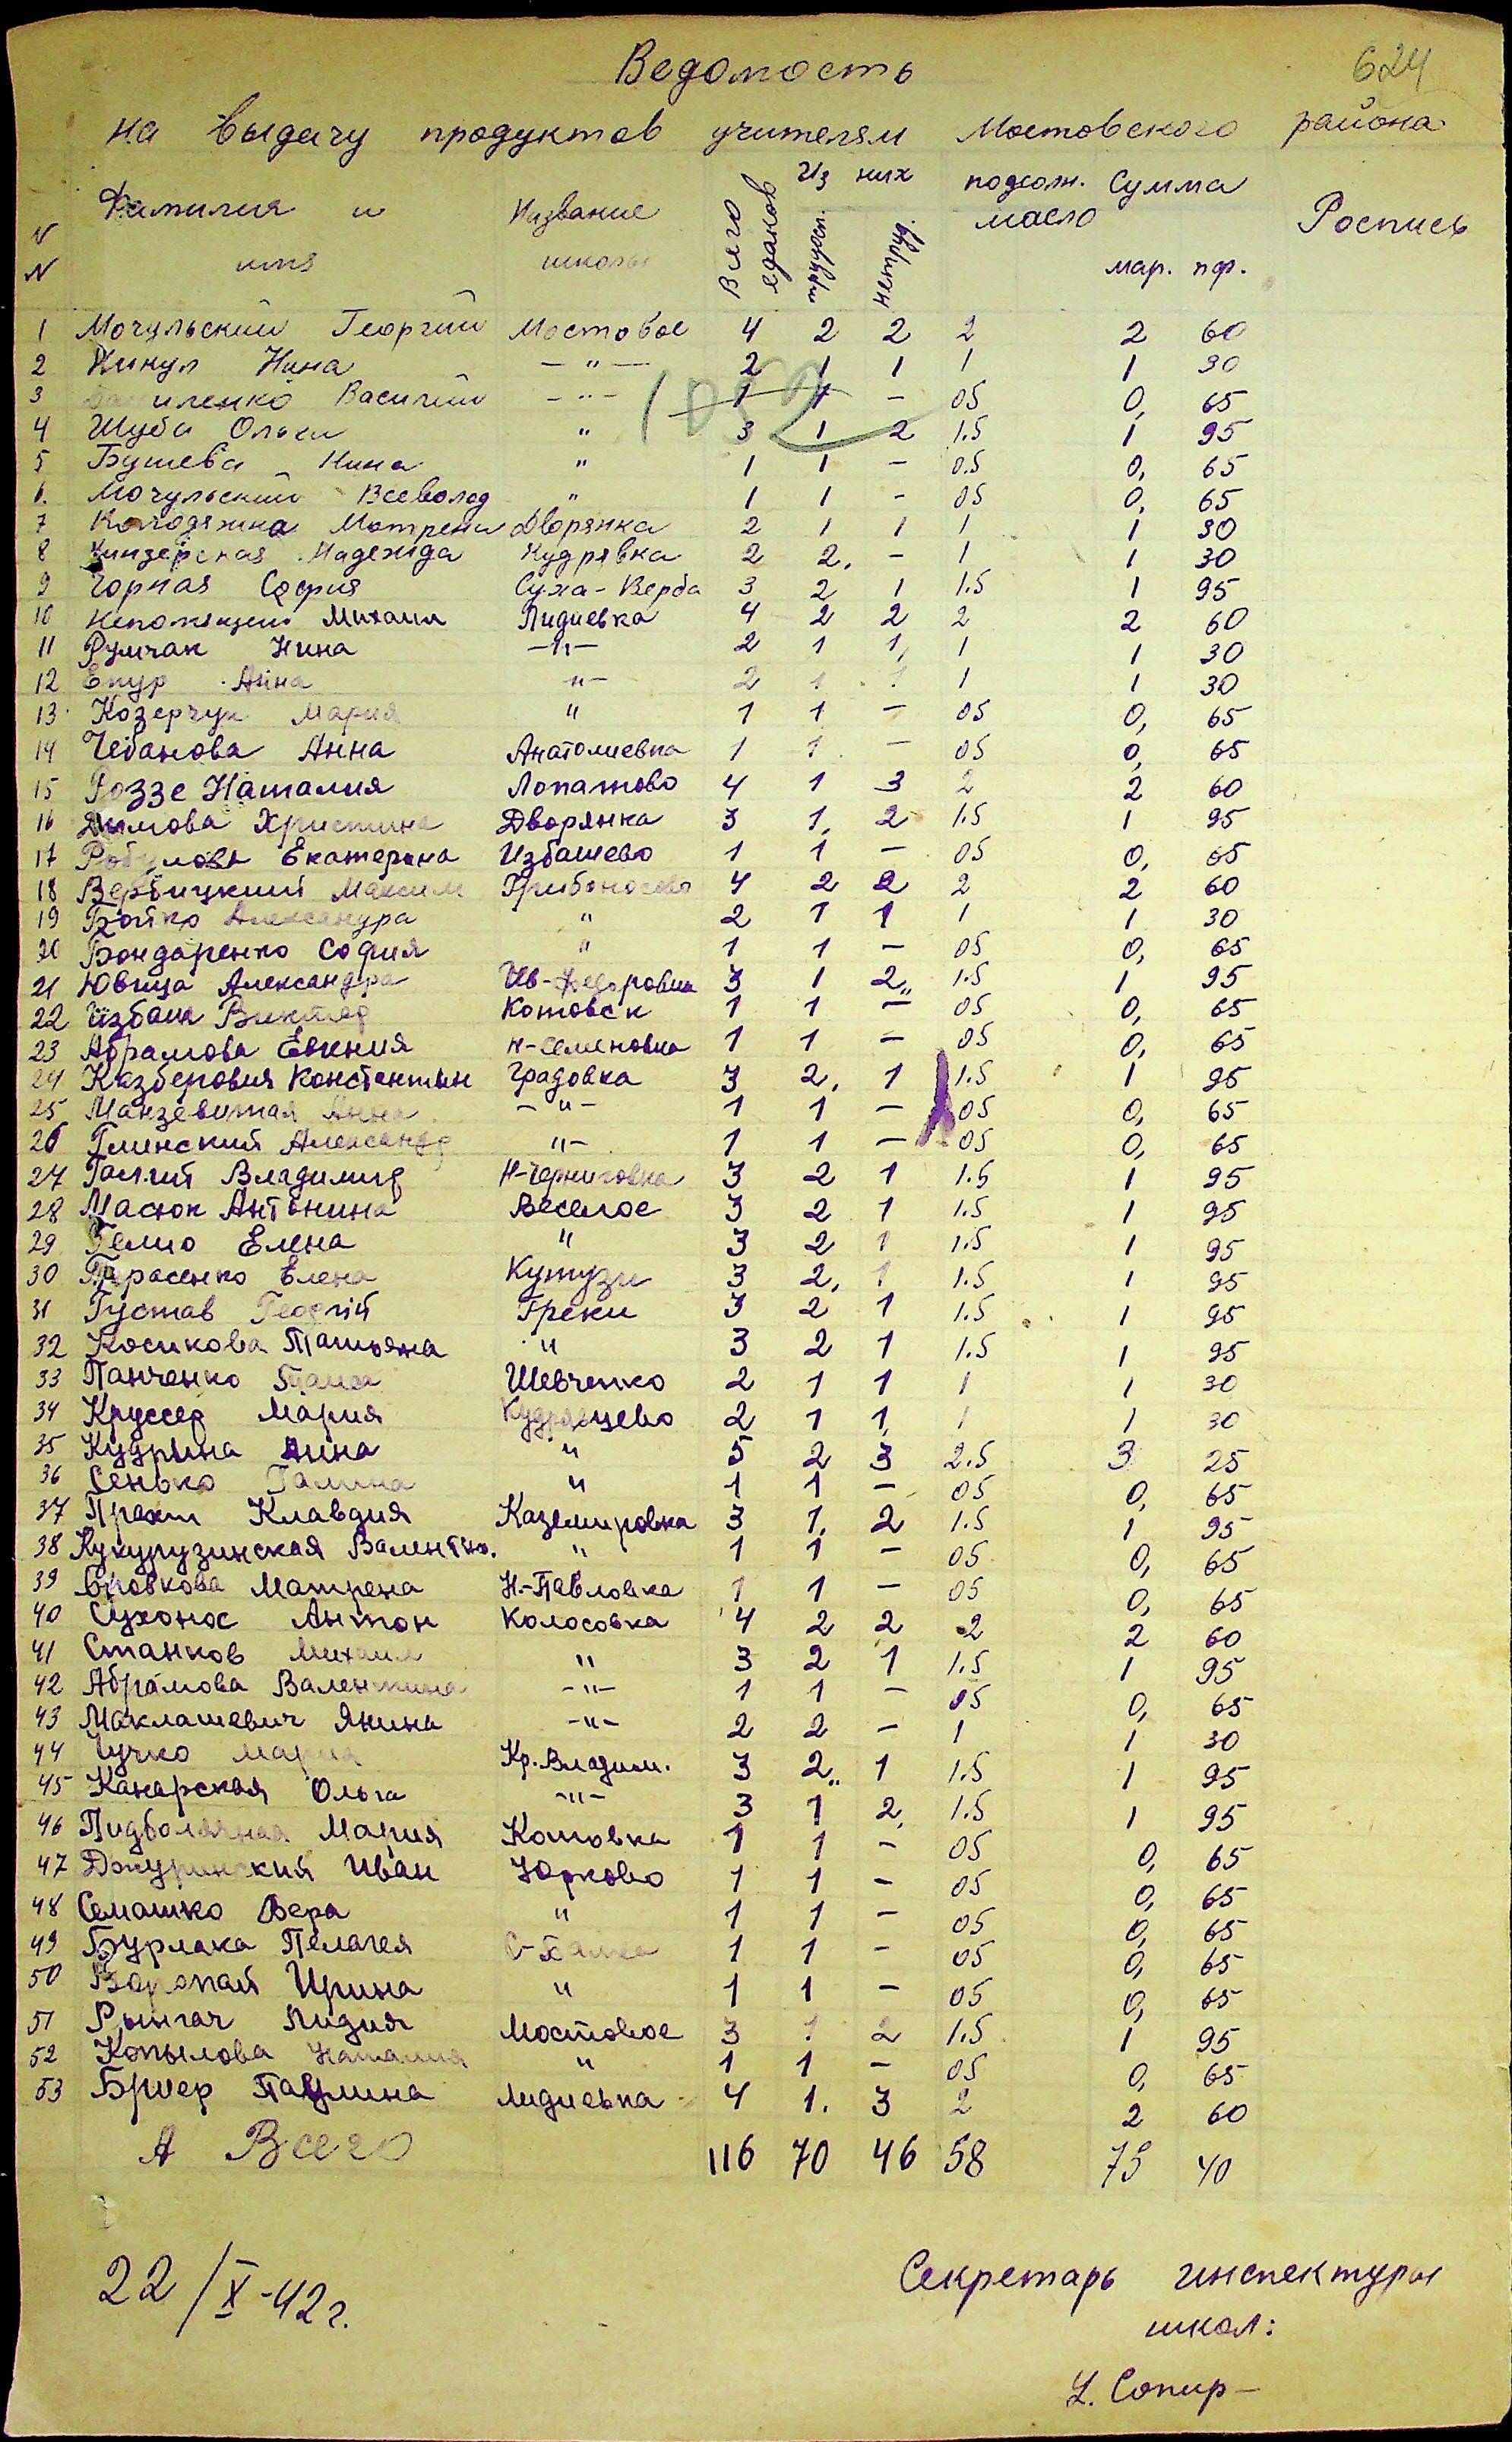 624
Ведомость
на выдачу продуктов учителям Мостовского района
N N Фамилия и имя Название школы Всего едаков Из них трудосп. нетруд. подсолн. масло Сумма мар. пф. Роспись
1 Мочульский Георгий Мостовое 4 2 2 2 2 60
2 Кикул Нина — " — 2 1 1 1 1 30
3 Василий — " — 1 1 — 05 0, 65
1052
4 Шуба Ольга " 3 1 2 1.5 1 95
5 Бушева Нина " 1 1 — 0.5 0, 65
6. Мочульский Всеволод " 1 1 - 05 0, 65
7 Колодяжна Матрена Дворянка 2 1 1 1 1 30
8 Надежда Кудрявка 2 2. — 1 1 30
9 Чорная София Суха-Верба 3 2 1 1.5 1 95
10 Непомящий Михаил Лидиевка 4 2 2 2 2 60
11 Румчак Нина —"— 2 1 1, 1 1 30
12 Екур Анна "— 2 1 1 1 1 30
13 Козерчук Мария " 1 1 — 05 0, 65
14 Чебанова Анна Анатолиевка 1 1 — 05 0, 65
15 Роззе Наталия Лопатово 4 1 3 2 2 60
16 Димова Христина Дворянка 3 1. 2 1.5 1 95
17 Екатерина Избашево 1 1 — 05 0, 65
18 Вербицкий Максим Грибоносово 4 2 2 2 2 60
19 Бойко Александра " 2 1 1 1 1 30
20 Бондаренко София " 1 1 — 05 0, 65
21 Ювица Александра Ив-Федоровка 3 1 2„ 1.5 1 95
22 Избаш Виктор Котовск 1 1 — 05 0, 65
23 Абрамова Евгения Н-Семеновка 1 1 — 05 0, 65
24 Казберович Константин Градовка 3 2. 1 1.5 1 95
25 Анна —"— 1 1 — 05 0, 65
26 Глинский Александр "— 1 1 — 05 0, 65
27 Владимир Н-Черниговка 3 2 1 1.5 1 95
28 Масюк Антонина Веселое 3 2 1 1.5 1 95
29 Елена " 3 2 1 1.5 1 95
30 Тарасенко Елена Кутузи 3 2. 1 1.5 1 95
31 Густав Георгій Греки 3 2 1 1.5 1 95
32 Косикова Татьяна " 3 2 1 1.5 1 95
33 Панченко Шевченко 2 1 1 1 1 30
34 Круссер Мария Кудрявцево 2 1 1, 1 1 30
35 Кудрина Нина " 5 2 3 2.5 3 25
36 Сенько Галина " 1 1 — 05 0, 65
37 Прахт Клавдия Каземировка 3 1. 2 1.5 1 95
38 Кукурузинская Валентин. " 1 1 — 05 0, 65
39 Бровкова Матрена Н.-Павловка 1 1 — 05 0, 65
40 Сухонос Антон Колосовка 4 2 2 2 2 60
41 Станков Михаил " 3 2 1 1.5 1 95
42 Абрамова Валентина —"— 1 1 — 05 0, 65
43 Маклашевич Янина —"— 2 2 — 1 1 30
44 Чучко Мария Кр. Владим. 3 2„ 1 1.5 1 95
45 Канарская Ольга —"— 3 1 2, 1.5 1 95
46 Мария Котовка 1 1 — 05 0, 65
47 Джуринский Иван Юрково 1 1 — 05 0, 65
48 Семашко Вера " 1 1 — 05 0, 65
49 Бурлака Пелагея 1 1 - 05 0, 65
50 Варопай Ирина " 1 1 — 05 0, 65
51 Рынгач Лидия Мостовое 3 1 2 1.5 1 95
52 Копылова Наталия " 1 1 — 05 0, 65
53 Бриер Павлина Лидиевка 4 1. 3 2 2 60
А Всего 116 70 46 58 75 40
22/X-42г.
Секретарь инспектуры
школ:
У. Сопир—